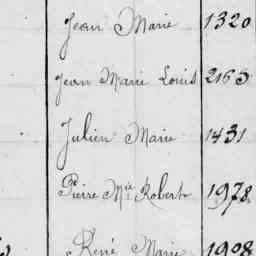 Jean Marie 1320
Jean Marie Louis 2165
Julien Marie 1431
Pierre Mie Robert 1978
René Marie 1908